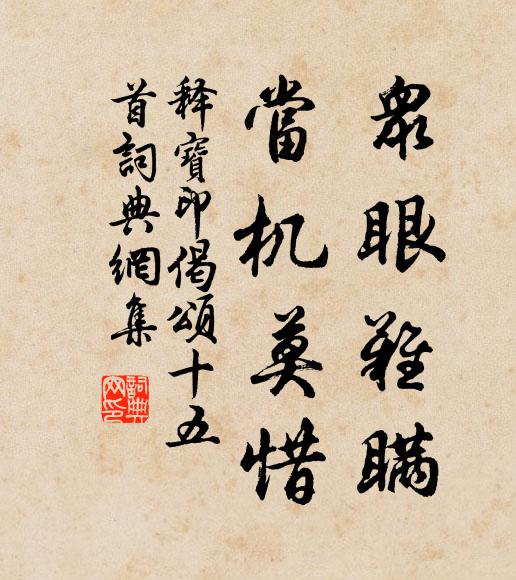 眾眼難瞞
當机莫惜
釋寶印偈頌十五
首詞典網集
詞典
网印